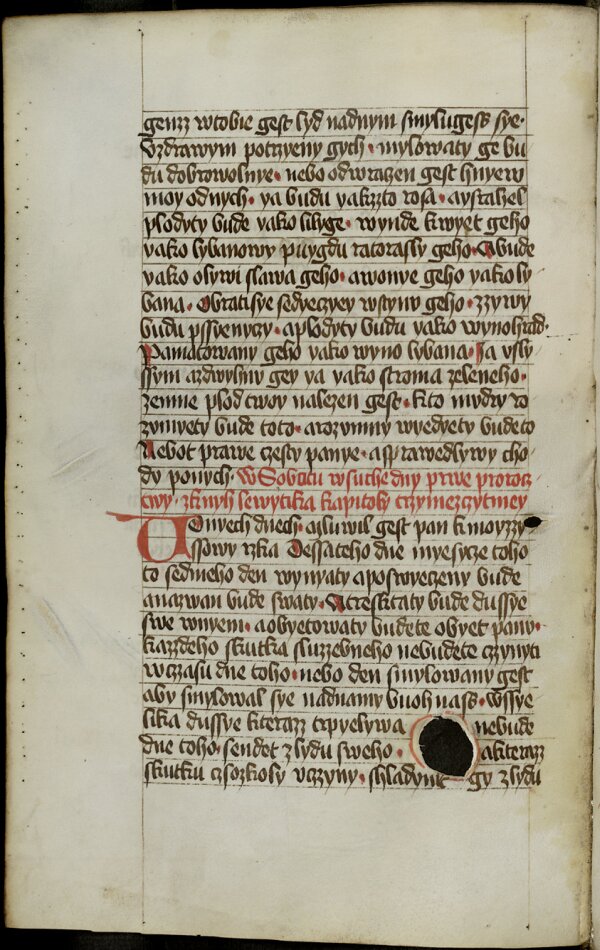 genzz wtobie gest lyd nadnym smylugess sye·
Vzdrawym potrzyeny gych · mylowaty ge bu
du dobrowolnye · nebo odwraczen gest hnyew
moy odnych · ya budu yakzto rosa · aysrahel
plodyty bude yako lilyge · wynde kwyet geho
yako lybanowy puygdu ratorasly geho · Abude
yako olywi slawa geho · awonye geho yako ly
bana · Obratisye sedyeczyey wstynv geho · zzywy
budu pssyenyczy · aplodyty budu yako wynohrad·
Pamatowany geho yako wyno lybana · Ja vsly
ssym azdwyhnv gey ya yako stroma zeleneho·
zemne plod twoy nalezen gest · kto mudry ro
zymyety bude toto · arozumny wyedyety budeto
Nebot prawe czesty panye · asprawedlywy cho
dy ponych · WSobotu wsuche dny prwe proroz
twy · zknyh lewytika kapitoly czrzymezczytmey
Donyech dnech · mluwil gest pan kmoyzzy
ssowy rzka Dessateho dne myesycze toho
to sedmeho den wynyaty aposwyeczeny bude
anazwan bude swaty · Atresktaty bude dussye
swe wnyem · aobyetowaty budete obyet panv·
kazzdeho skutka sluzzebneho nebudete czynyti
wczasu dne toho · nebo den smylowany gest
aby smylowal sye nadnamy buoh nass · wssye
lika dussye kteraz trpyelywa nebude
dne toho · sendet zlydu sweho · akterazz
skutku czsozkoly vczyny · shladym gy zlydu